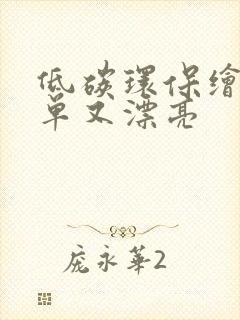 低碳環保繪
單又漂亮
龐永華2